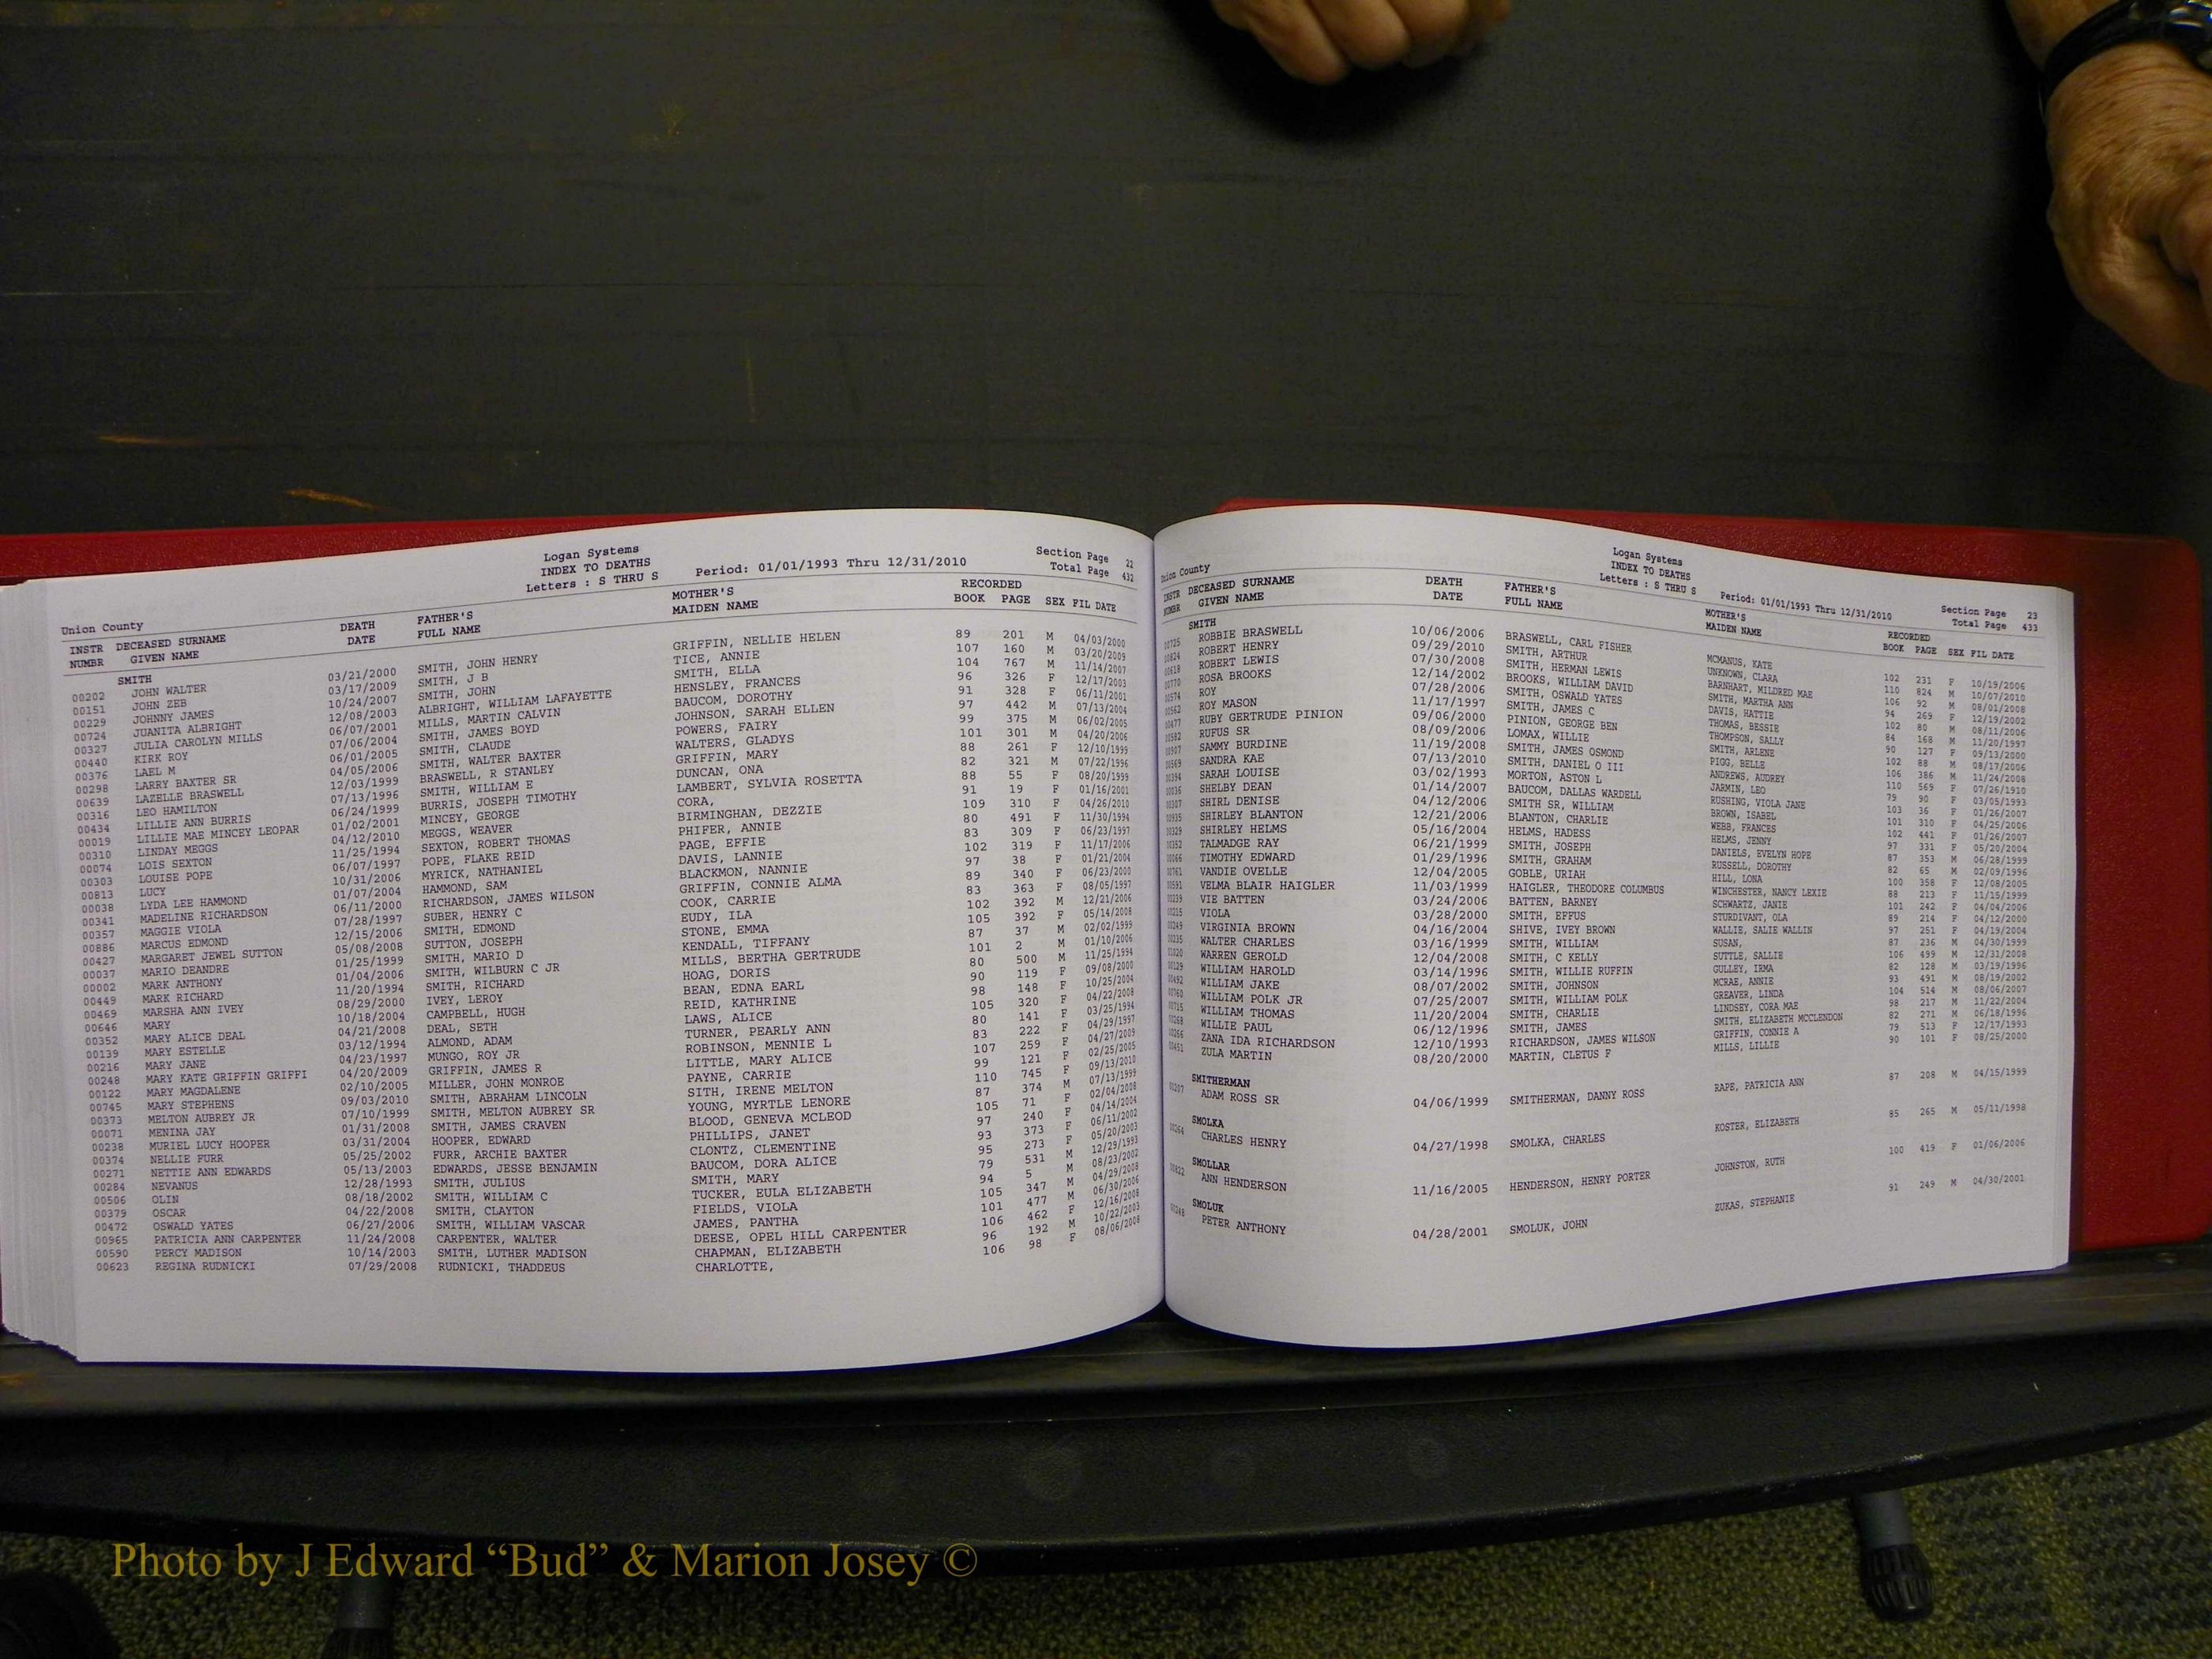 Logan Systems
INDEX TO DEATHS
Letters : S THRU S Period: 01/01/1993 Thru 12/31/2010
Section Page 22
Total Page 432
Union County
INSTR DECEASED SURNAME DEATH FATHER'S MOTHER'S RECORDED
NUMBR GIVEN NAME DATE FULL NAME MAIDEN NAME BOOK PAGE SEX FIL DATE
SMITH
00202 JOHN WALTER 03/21/2000 SMITH, JOHN HENRY GRIFFIN, NELLIE HELEN 89 201 M 04/03/2000
00151 JOHN ZEB 03/17/2009 SMITH, J B TICE, ANNIE 107 160 M 03/20/2009
00229 JOHNNY JAMES 10/24/2007 SMITH, JOHN SMITH, ELLA 104 767 M 11/14/2007
00724 JUANITA ALBRIGHT 12/08/2003 ALBRIGHT, WILLIAM LAFAYETTE HENSLEY, FRANCES 96 326 F 12/17/2003
00327 JULIA CAROLYN MILLS 06/07/2001 MILLS, MARTIN CALVIN BAUCOM, DOROTHY 91 328 F 06/11/2001
00440 KIRK ROY 07/06/2004 SMITH, JAMES BOYD JOHNSON, SARAH ELLEN 97 442 M 07/13/2004
00376 LAEL M 06/01/2005 SMITH, CLAUDE POWERS, FAIRY 99 375 M 06/02/2005
00298 LARRY BAXTER SR 04/05/2006 SMITH, WALTER BAXTER WALTERS, GLADYS 101 301 M 04/20/2006
00639 LAZELLE BRASWELL 12/03/1999 BRASWELL, R STANLEY GRIFFIN, MARY 88 261 F 12/10/1999
00316 LEO HAMILTON 07/13/1996 SMITH, WILLIAM E DUNCAN, ONA 82 321 M 07/22/1996
00434 LILLIE ANN BURRIS 06/24/1999 BURRIS, JOSEPH TIMOTHY LAMBERT, SYLVIA ROSETTA 88 55 F 08/20/1999
00019 LILLIE MAE MINCEY LEOPAR 01/02/2001 MINCEY, GEORGE CORA, 91 19 F 01/16/2001
00310 LINDAY MEGGS 04/12/2010 MEGGS, WEAVER BIRMINGHAM, DEZZIE 109 310 F 04/26/2010
00074 LOIS SEXTON 11/25/1994 SEXTON, ROBERT THOMAS PHIFER, ANNIE 80 491 F 11/30/1994
00303 LOUISE POPE 06/07/1997 POPE, FLAKE REID PAGE, EFFIE 83 309 F 06/23/1997
00813 LUCY 10/31/2006 MYRICK, NATHANIEL DAVIS, LANNIE 102 319 F 11/17/2006
00038 LYDA LEE HAMMOND 01/07/2004 HAMMOND, SAM BLACKMON, NANNIE 97 38 F 01/21/2004
00341 MADELINE RICHARDSON 06/11/2000 RICHARDSON, JAMES WILSON GRIFFIN, CONNIE ALMA 89 340 F 06/23/2000
00357 MAGGIE VIOLA 07/28/1997 SUBER, HENRY C COOK, CARRIE 83 363 F 08/05/1997
00886 MARCUS EDMOND 12/15/2006 SMITH, EDMOND EUDY, ILA 102 392 M 12/21/2006
00427 MARGARET JEWEL SUTTON 05/08/2008 SUTTON, JOSEPH STONE, EMMA 105 392 F 05/14/2008
00037 MARIO DEANDRE 01/25/1999 SMITH, MARIO D KENDALL, TIFFANY 87 37 M 02/02/1999
00002 MARK ANTHONY 01/04/2006 SMITH, WILBURN C JR MILLS, BERTHA GERTRUDE 101 2 M 01/10/2006
00449 MARK RICHARD 11/20/1994 SMITH, RICHARD HOAG, DORIS 80 500 M 11/25/1994
00469 MARSHA ANN IVEY 08/29/2000 IVEY, LEROY BEAN, EDNA EARL 90 119 F 09/08/2000
00646 MARY 10/18/2004 CAMPBELL, HUGH REID, KATHRINE 98 148 F 10/25/2004
00352 MARY ALICE DEAL 04/21/2008 DEAL, SETH LAWS, ALICE 105 320 F 04/22/2008
00139 MARY ESTELLE 03/12/1994 ALMOND, ADAM TURNER, PEARLY ANN 80 141 F 03/25/1994
00216 MARY JANE 04/23/1997 MUNGO, ROY JR ROBINSON, MENNIE L 83 222 F 04/29/1997
00248 MARY KATE GRIFFIN GRIFFI 04/20/2009 GRIFFIN, JAMES R LITTLE, MARY ALICE 107 259 F 04/27/2009
00122 MARY MAGDALENE 02/10/2005 MILLER, JOHN MONROE PAYNE, CARRIE 99 121 F 02/25/2005
00745 MARY STEPHENS 09/03/2010 SMITH, ABRAHAM LINCOLN SITH, IRENE MELTON 110 745 F 09/13/2010
00373 MELTON AUBREY JR 07/10/1999 SMITH, MELTON AUBREY SR YOUNG, MYRTLE LENORE 87 374 M 07/13/1999
00071 MENINA JAY 01/31/2008 SMITH, JAMES CRAVEN BLOOD, GENEVA MCLEOD 105 71 F 02/04/2008
00238 MURIEL LUCY HOOPER 03/31/2004 HOOPER, EDWARD PHILLIPS, JANET 97 240 F 04/14/2004
00374 NELLIE FURR 05/25/2002 FURR, ARCHIE BAXTER CLONTZ, CLEMENTINE 93 373 F 06/11/2002
00271 NETTIE ANN EDWARDS 05/13/2003 EDWARDS, JESSE BENJAMIN BAUCOM, DORA ALICE 95 273 F 05/20/2003
00284 NEVANUS 12/28/1993 SMITH, JULIUS SMITH, MARY 79 531 M 12/29/1993
00506 OLIN 08/18/2002 SMITH, WILLIAM C TUCKER, EULA ELIZABETH 94 5 M 08/23/2002
00379 OSCAR 04/22/2008 SMITH, CLAYTON FIELDS, VIOLA 105 347 M 04/29/2008
00472 OSWALD YATES 06/27/2006 SMITH, WILLIAM VASCAR JAMES, PANTHA 101 477 M 06/30/2006
00965 PATRICIA ANN CARPENTER 11/24/2008 CARPENTER, WALTER DEESE, OPEL HILL CARPENTER 106 462 F 12/16/2008
00590 PERCY MADISON 10/14/2003 SMITH, LUTHER MADISON CHAPMAN, ELIZABETH 96 192 M 10/22/2003
00623 REGINA RUDNICKI 07/29/2008 RUDNICKI, THADDEUS CHARLOTTE, 106 98 F 08/06/2008
Logan Systems
INDEX TO DEATHS
Letters : S THRU S Period: 01/01/1993 Thru 12/31/2010
Section Page 23
Total Page 433
Union County
INSTR DECEASED SURNAME DEATH FATHER'S MOTHER'S RECORDED
NUMBR GIVEN NAME DATE FULL NAME MAIDEN NAME BOOK PAGE SEX FIL DATE
SMITH
00725 ROBBIE BRASWELL 10/06/2006 BRASWELL, CARL FISHER MCMANUS, KATE 102 231 F 10/19/2006
00824 ROBERT HENRY 09/29/2010 SMITH, ARTHUR UNKNOWN, CLARA 110 824 M 10/07/2010
00618 ROBERT LEWIS 07/30/2008 SMITH, HERMAN LEWIS BARNHART, MILDRED MAE 106 92 M 08/01/2008
00770 ROSA BROOKS 12/14/2002 BROOKS, WILLIAM DAVID SMITH, MARTHA ANN 94 269 F 12/19/2002
00574 ROY 07/28/2006 SMITH, OSWALD YATES DAVIS, HATTIE 102 80 M 08/11/2006
00562 ROY MASON 11/17/1997 SMITH, JAMES C THOMAS, BESSIE 84 168 M 11/20/1997
00477 RUBY GERTRUDE PINION 09/06/2000 PINION, GEORGE BEN THOMPSON, SALLY 90 127 F 09/13/2000
00582 RUFUS SR 08/09/2006 LOMAX, WILLIE SMITH, ARLENE 102 88 M 08/17/2006
00907 SAMMY BURDINE 11/19/2008 SMITH, JAMES OSMOND PIGG, BELLE 106 386 M 11/24/2008
00569 SANDRA KAE 07/13/2010 SMITH, DANIEL O III ANDREWS, AUDREY 110 569 F 07/26/1910
00394 SARAH LOUISE 03/02/1993 MORTON, ASTON L JARMIN, LEO 79 90 F 03/05/1993
00036 SHELBY DEAN 01/14/2007 BAUCOM, DALLAS WARDELL RUSHING, VIOLA JANE 103 36 F 01/26/2007
00307 SHIRL DENISE 04/12/2006 SMITH SR, WILLIAM BROWN, ISABEL 101 310 F 04/25/2006
00935 SHIRLEY BLANTON 12/21/2006 BLANTON, CHARLIE WEBB, FRANCES 102 441 F 01/26/2007
00329 SHIRLEY HELMS 05/16/2004 HELMS, HADESS HELMS, JENNY 97 331 F 05/20/2004
00352 TALMADGE RAY 06/21/1999 SMITH, JOSEPH DANIELS, EVELYN HOPE 87 353 M 06/28/1999
00066 TIMOTHY EDWARD 01/29/1996 SMITH, GRAHAM RUSSELL, DOROTHY 82 65 M 02/09/1996
00761 VANDIE OVELLE 12/04/2005 GOBLE, URIAH HILL, LONA 100 358 F 12/08/2005
00591 VELMA BLAIR HAIGLER 11/03/1999 HAIGLER, THEODORE COLUMBUS WINCHESTER, NANCY LEXIE 88 213 F 11/15/1999
00239 VIE BATTEN 03/24/2006 BATTEN, BARNEY SCHWARTZ, JANIE 101 242 F 04/04/2006
00215 VIOLA 03/28/2000 SMITH, EFFUS STURDIVANT, OLA 89 214 F 04/12/2000
00249 VIRGINIA BROWN 04/16/2004 SHIVE, IVEY BROWN WALLIE, SALIE WALLIN 97 251 F 04/19/2004
00235 WALTER CHARLES 03/16/1999 SMITH, WILLIAM SUSAN, 87 236 M 04/30/1999
01020 WARREN GEROLD 12/04/2008 SMITH, C KELLY SUTTLE, SALLIE 106 499 M 12/31/2008
00129 WILLIAM HAROLD 03/14/1996 SMITH, WILLIE RUFFIN GULLEY, IRMA 82 128 M 03/19/1996
00492 WILLIAM JAKE 08/07/2002 SMITH, JOHNSON MCRAE, ANNIE 93 491 M 08/19/2002
00760 WILLIAM POLK JR 07/25/2007 SMITH, WILLIAM POLK GREAVER, LINDA 104 514 M 08/06/2007
00715 WILLIAM THOMAS 11/20/2004 SMITH, CHARLIE LINDSEY, CORA MAE 98 217 M 11/22/2004
00268 WILLIE PAUL 06/12/1996 SMITH, JAMES SMITH, ELIZABETH MCCLENDON 82 271 M 06/18/1996
00266 ZANA IDA RICHARDSON 12/10/1993 RICHARDSON, JAMES WILSON GRIFFIN, CONNIE A 79 513 F 12/17/1993
00451 ZULA MARTIN 08/20/2000 MARTIN, CLETUS F MILLS, LILLIE 90 101 F 08/25/2000
SMITHERMAN
00207 ADAM ROSS SR 04/06/1999 SMITHERMAN, DANNY ROSS RAPE, PATRICIA ANN 87 208 M 04/15/1999
SMOLKA
00264 CHARLES HENRY 04/27/1998 SMOLKA, CHARLES KOSTER, ELIZABETH 85 265 M 05/11/1998
SMOLLAR
00822 ANN HENDERSON 11/16/2005 HENDERSON, HENRY PORTER JOHNSTON, RUTH 100 419 F 01/06/2006
SMOLUK
00248 PETER ANTHONY 04/28/2001 SMOLUK, JOHN ZUKAS, STEPHANIE 91 249 M 04/30/2001
Photo by J Edward “Bud” & Marion Josey ©